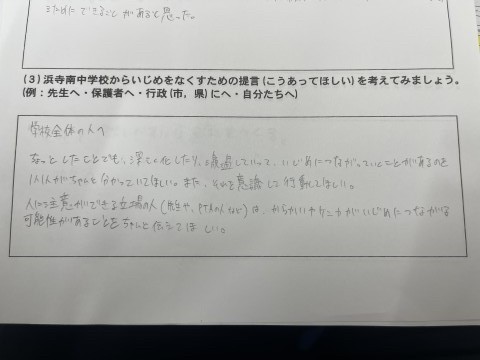 るためにできることがあると思った。
(3)浜寺南中学校からいじめをなくすための提言(こうあってほしい)を考えてみましょう。
(例:先生へ・保護者へ・行政(市,県)にへ・自分たちへ)
学校全体の人へ
ちょっとしたことでも、深こ化したり、していって、いじめにつながっていくことがあるのを
1人1人がちゃんと分かっていてほしい。また、それを意識して行動してほしい。
人に注意ができる立場の人(先生や、PTAの人など)は、からかいやケンカがいじめにつながる
可能性があることをちゃんと伝えてほしい。